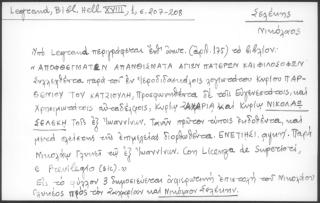 Legrand, Bibl. Hell XVIII, 1, σ. 207-208
Σελέκης
Νικόλαος
Υπὸ Legrand περιγράφεται ὑπ' ἀριθ. (ἀρ. 175) τὸ βιβλίον:
« ΑΠΟΦΘΕΓΜΑΤΩΝ ΑΠΑΝΘΙΣΜΑΤΑ ΑΓΙΩΝ ΠΑΤΕΡΩΝ ΚΑΙ ΦΙΛΟΣΟΦΩΝ
Συλλεχθέντα παρὰ τοῦ ἐν Ἱεροδιδασκάλοις λογιωτάτου Κυρίου ΠΑΡ-
ΘΕΝΙΟΥ ΤΟΥ ΚΑΤΖΙΟΥΛΗ, Προσφωνηθέντα δὲ τοῖς Εὐγενεστάτοις, καὶ
Χρησιμωτάτοις αὐταδέλφοις, Κυρίῳ ΖΑΧΑΡΙᾼ καὶ Κυρίῳ ΝΙΚΟΛΑΩ
ΣΕΛΕΚΗ Τοῖς ἐξ Ἰωαννίνων. Τανῦν πρῶτον τύποις ἐκδοθέντα, καὶ
μετὰ πλείστης τῆς ἐπιμελείας διορθωθέντα. ΕΝΕΤΙΗΣΙ, Παρὰ
Νικολάῳ Γλυκεῖ τῷ ἐξ Ἰωαννίνων. Con Licenza de Superiori,
e Previlegio (sic). »
Εἰς τὸ φύλλον 3 δημοσιεύεται ἀφιερωτικὴ ἐπιστολὴ τοῦ Νικολάου
Γλυκέος πρὸς τὸν Ζαχαρίαν καὶ Νικόλαον Σελέκην.